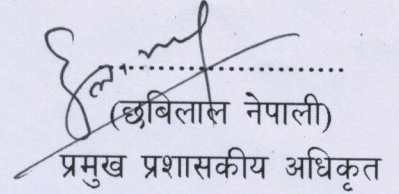 (छबिलाल नेपाली)
प्रमुख प्रशासकीय अधिकृत